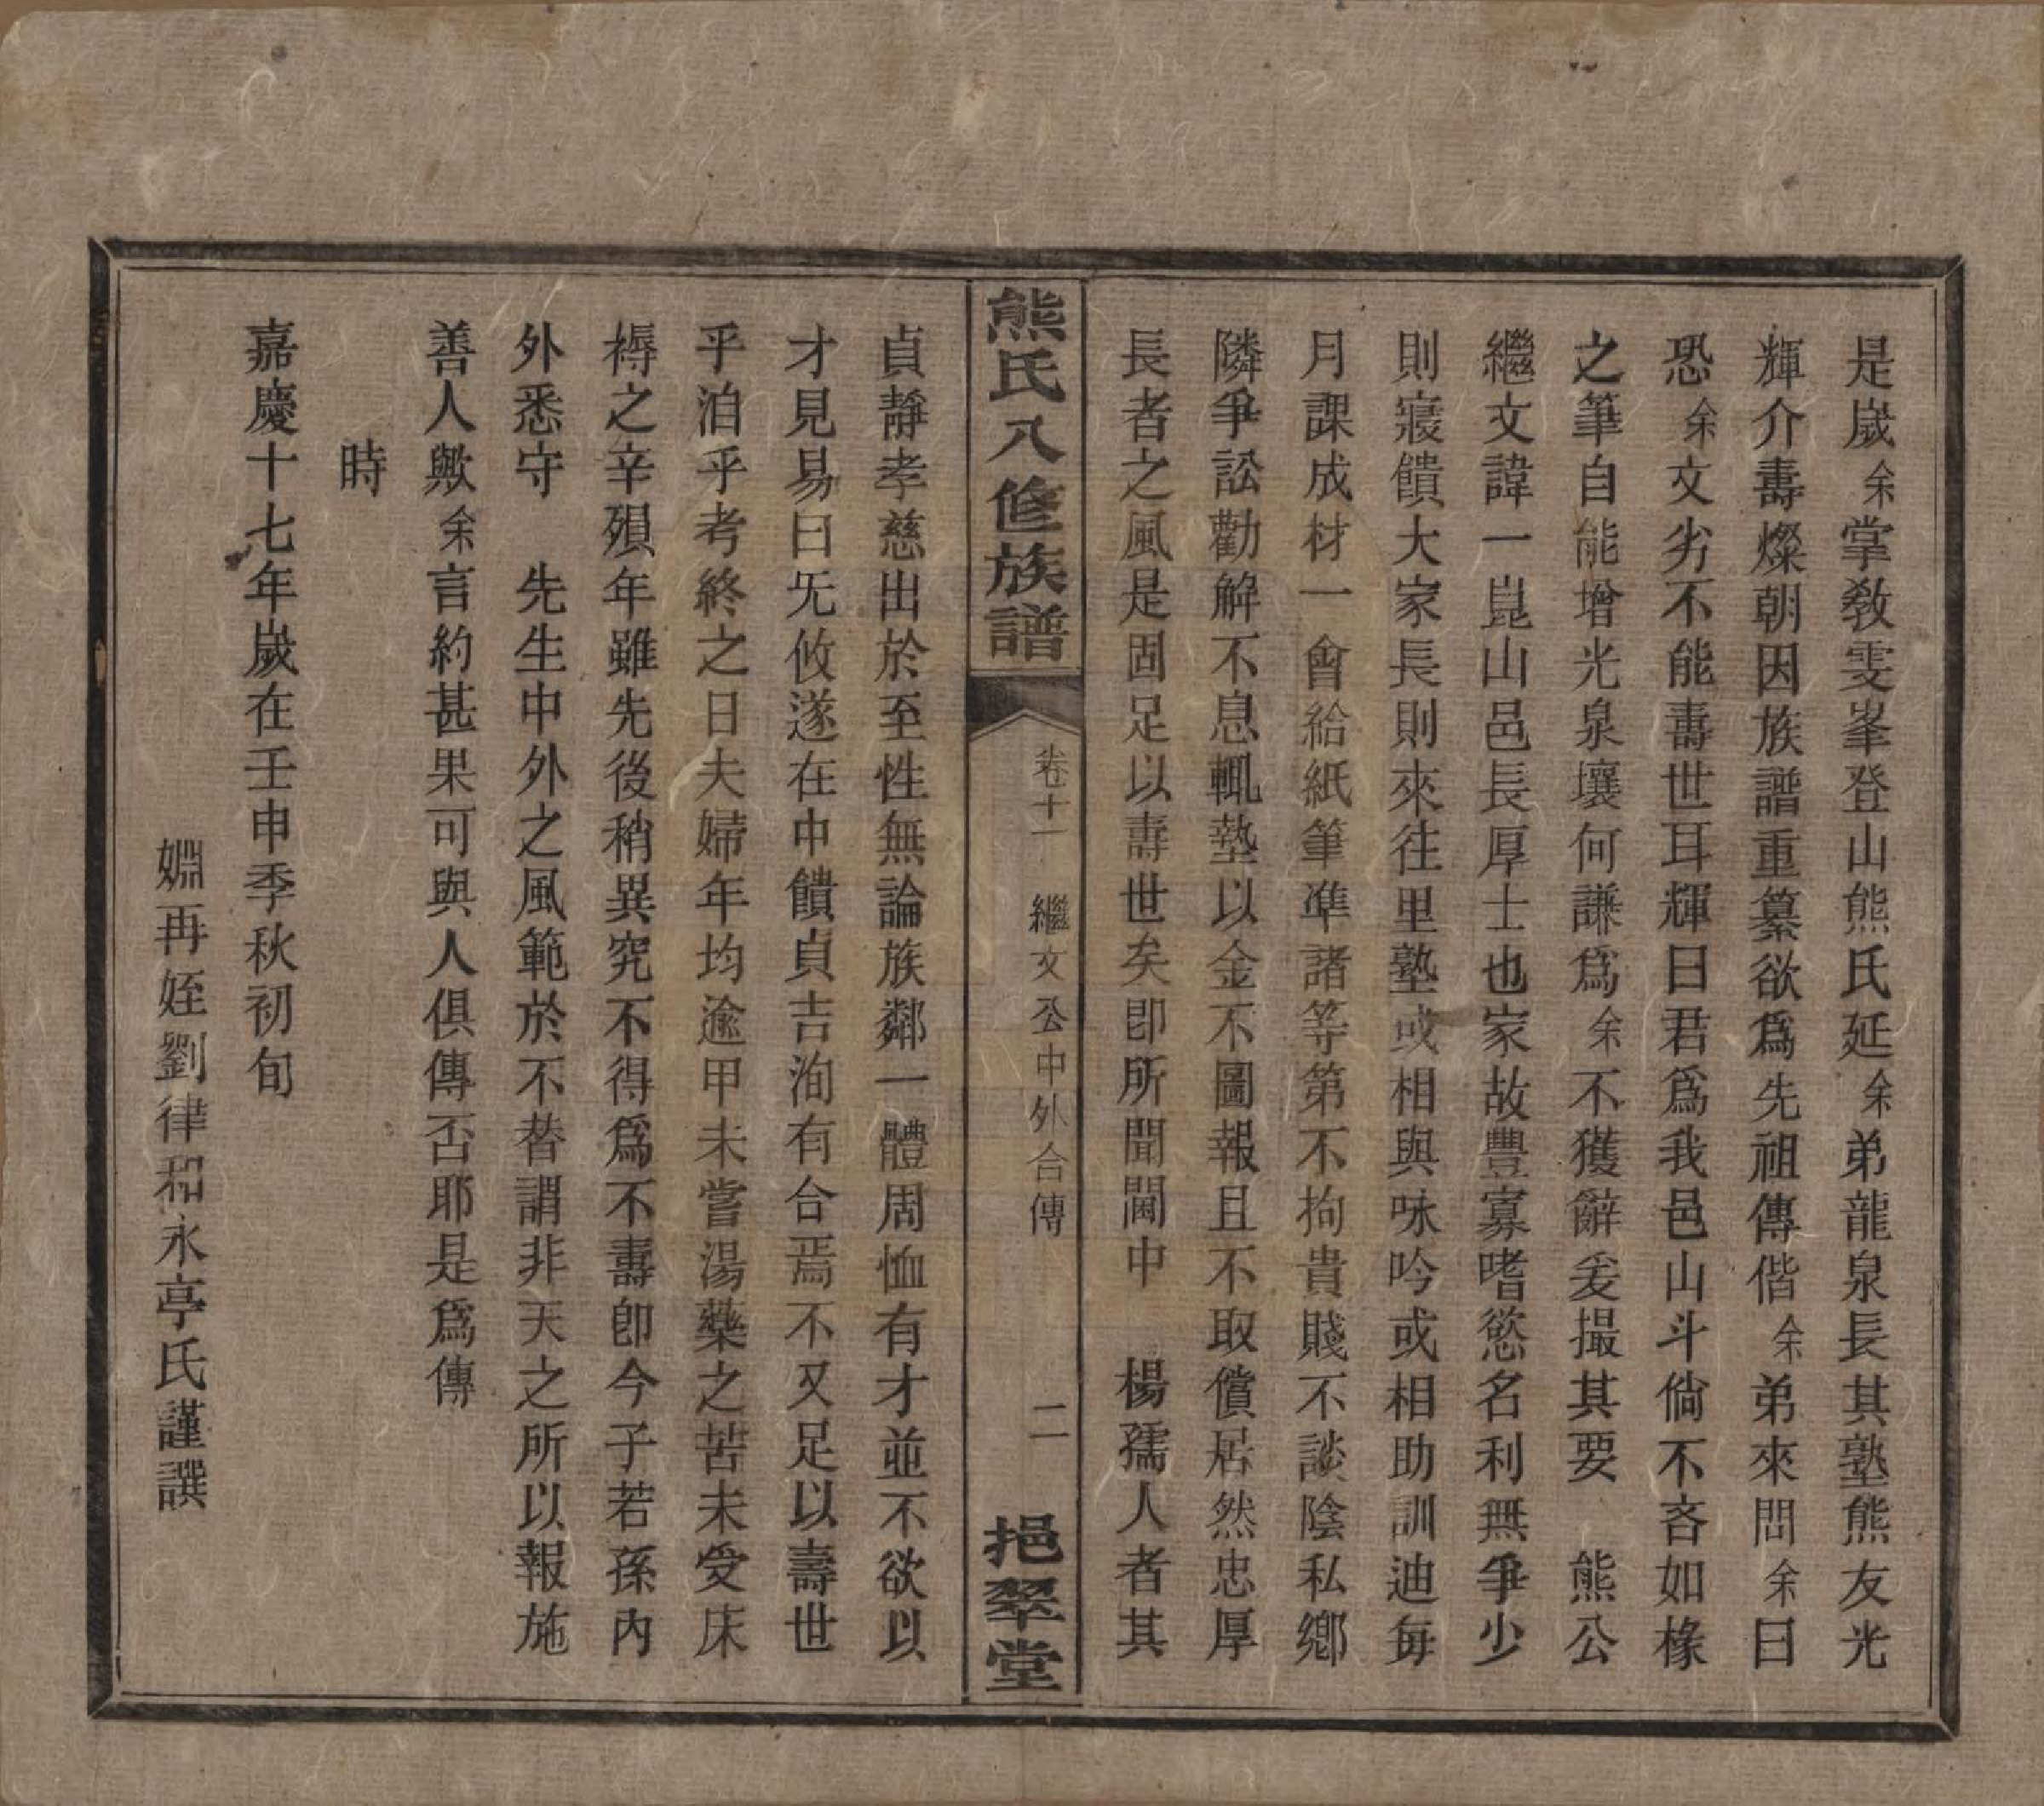 是嵗余掌敎雯峯登山熊氏延余弟龍泉長其塾熊友光
輝介壽燦朝因族譜重纂欲爲先祖傳偕余弟來問余曰
恐余文劣不能壽世耳輝曰君爲我邑山斗倘不吝如椽
之筆自能增光泉壤何謙爲余不獲辭爰撮其要　熊公
繼文諱一崑山邑長厚士也家故豐寡嗜慾名利無爭少
則寢饋大家長則來往里塾或相與咏吟或相助訓迪每
月課成材一會給紙筆準諸等第不拘貴賤不談陰私鄉
隣爭訟勸解不息輒墊以金不圖報且不取償居然忠厚
長者之風是固足以壽世矣卽所聞閫中　楊孺人者其
熊氏八修族譜
卷十一　繼文公中外合傳　二
挹翠堂
貞靜孝慈出於至性無論族鄰一體周恤有才並不欲以
才見易曰旡攸遂在中饋貞吉洵有合焉不又足以壽世
乎洎乎考終之日夫婦年均逾甲未嘗湯藥之苦未受床
褥之辛殞年雖先後稍異究不得爲不壽卽今子若孫內
外悉守　先生中外之風範於不替謂非天之所以報施
善人歟余言約甚果可與人俱傳否耶是爲傳
時
嘉慶十七年嵗在壬申季秋初旬
婣再姪劉律和永亭氏謹譔